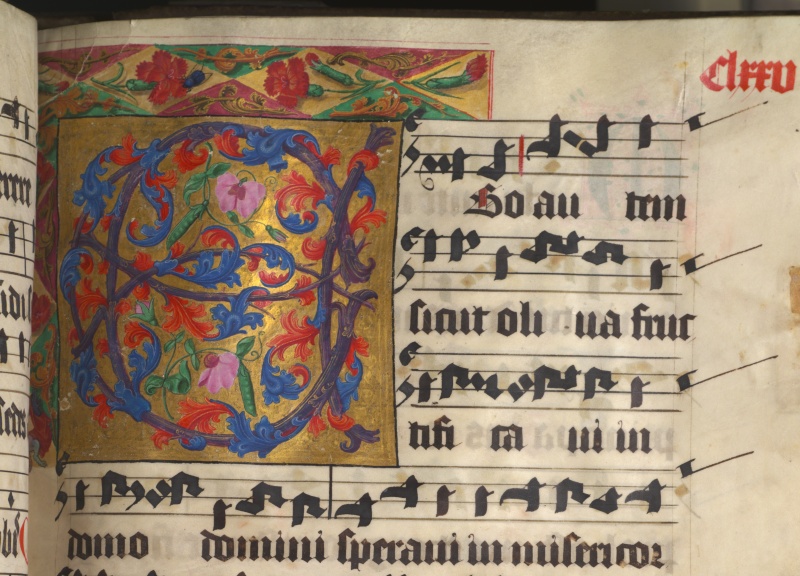 Clxxv
EGo au tem
sicut oli ua fruc
tifi ca ui in
domo domini speraui in misericor